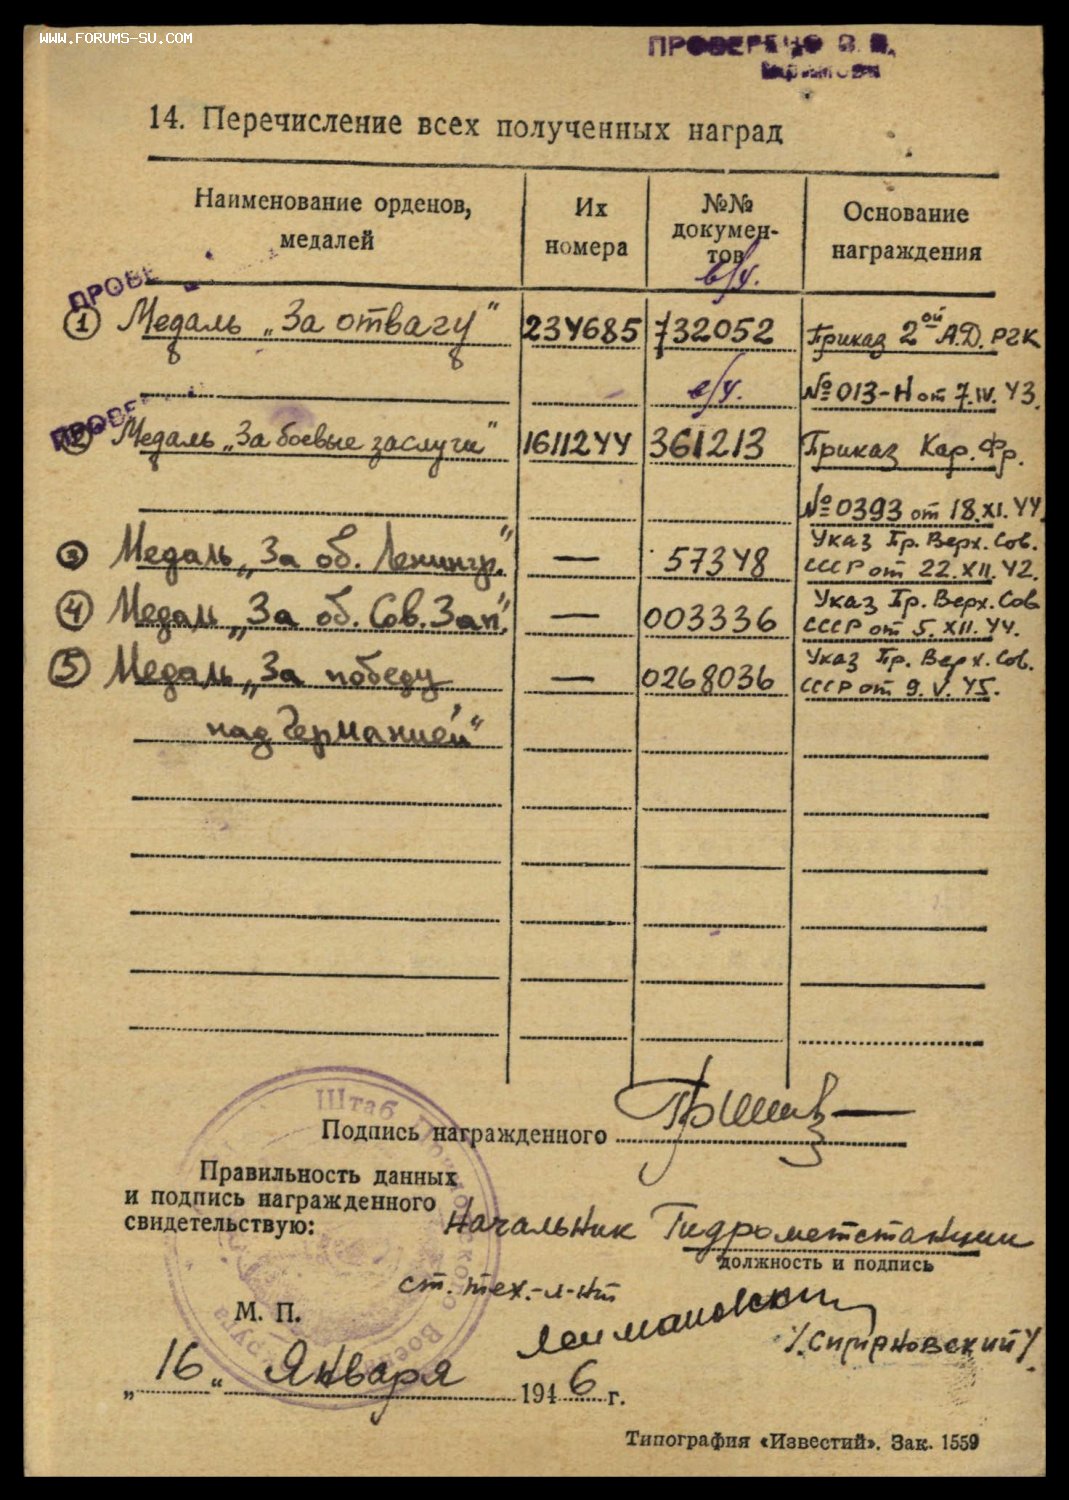 WWW.FORUMS-SU.COM
ПРОВЕРЕНО
14. Перечисление всех полученных наград
Наименование орденов, медалей
Их номера
№№ докумен-тов
Основание награждения
в/у.
ПРОВЕ
1 Медаль „За отвагу" 234685 732052 Приказ 2ой А.Д. РГК
в/у. №013-Н от 7.IV.43.
ПРОВЕ
2 Медаль „За боевые заслуги" 1611244 361213 Приказ Кар. Фр.
№0393 от 18.XI.44.
3 Медаль „За об. Ленингр." — 57348 Указ Пр. Верх. Сов.
СССР от 22.XII.42.
4 Медаль „За об. Сов. Зап." — 003336 Указ Пр. Верх. Сов
СССР от 5.XII.44.
5 Медаль „За победу — 0268036 Указ Пр. Верх. Сов.
СССР от 9.V.45.
над Германией"
Подпись награжденного
Правильность данных
и подпись награжденного
свидетельствую:
Начальник Гидрометстанции
должность и подпись
ст. тех.-л-нт
М. П.
„16" Января 1946 г.
Штаб
Типография «Известий». Зак. 1559